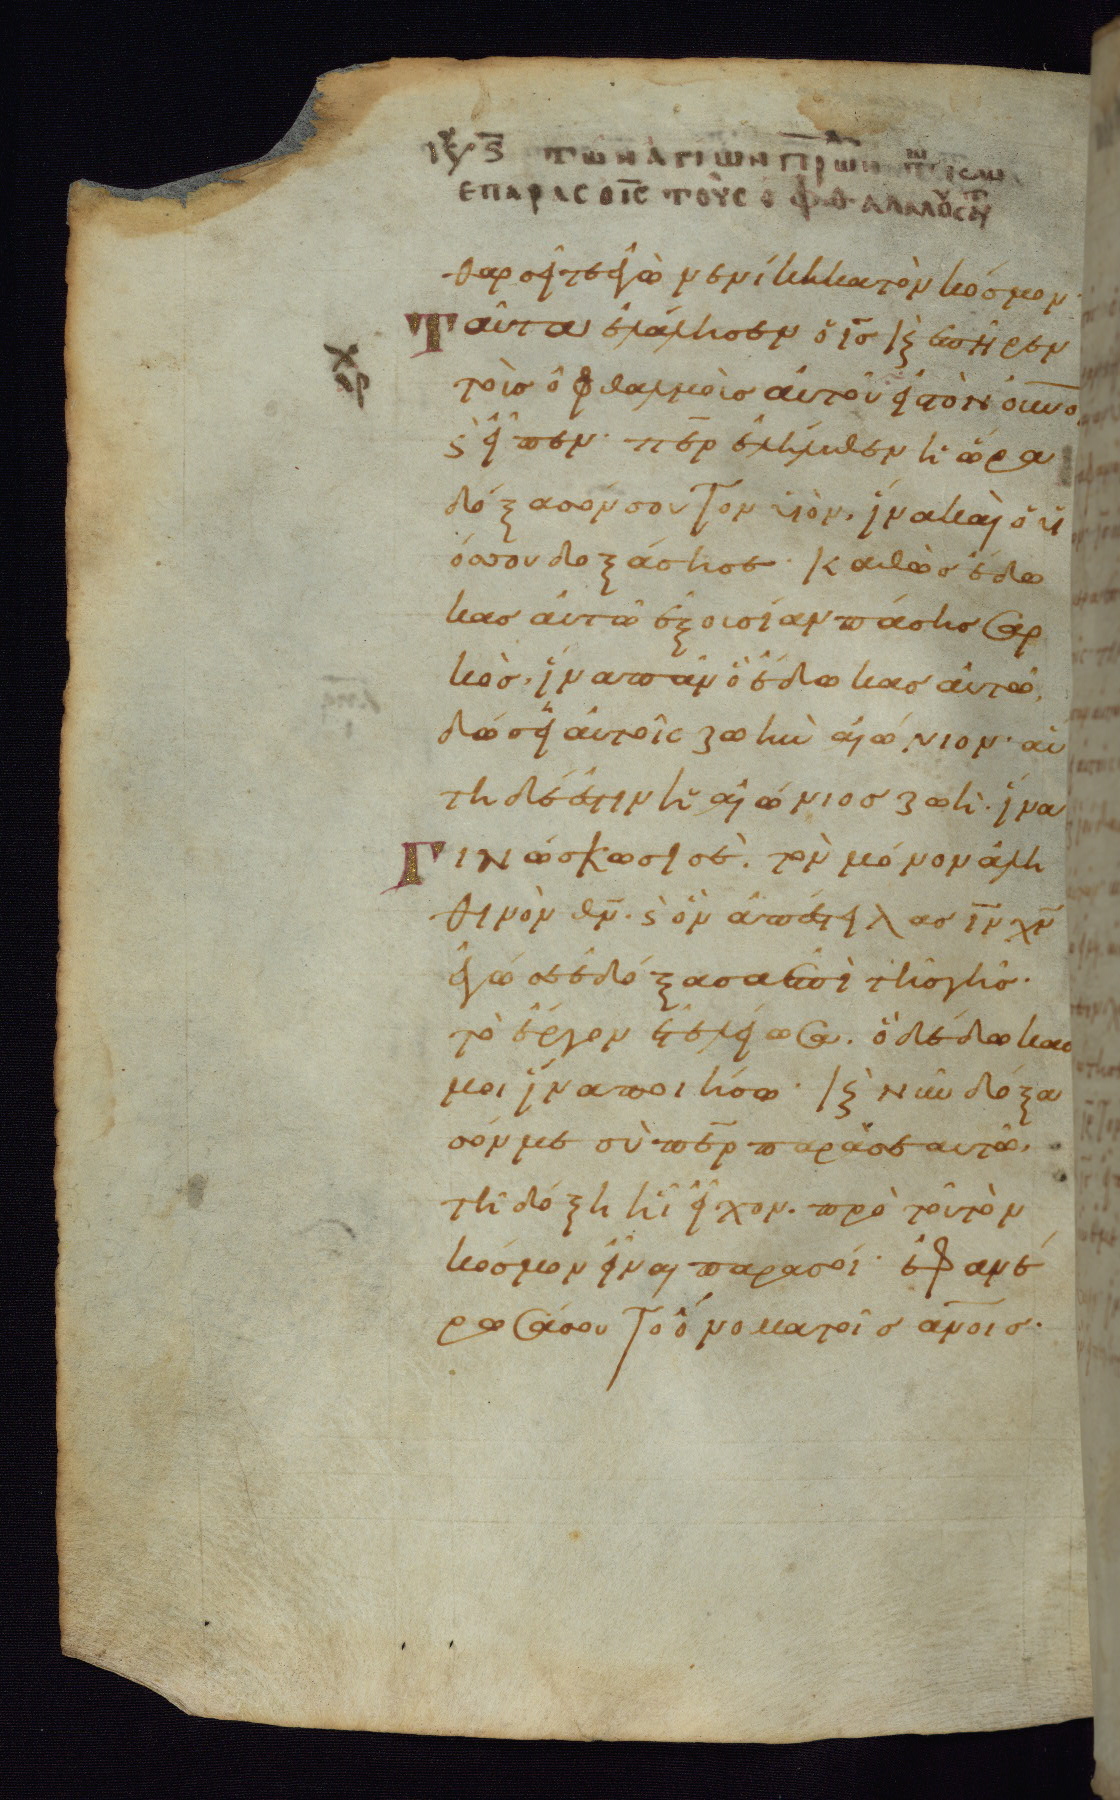 τῶν ἁγίων πρων
ἐπάρας ὁ ις τοὺς ὀφθαλμοὺς
θαρσεῖτε ἐγὼ νενίκηκα τὸν κόσμον·
Ταῦτα ἐλάλησεν ὁ ις κ ἐπῆρεν
τοὺς ὀφθαλμοὺς αὐτοῦ εἰς τὸν οὐνο
κ εἶπεν· περ ἐλήλυθεν ἡ ὥρα
δόξασόν σου τον υἱὸν, ἵνα καὶ ὁ υἱ
ός σου δοξάσησε· Καθὼς ἔδω
κας αὐτῶ ἐξουσίαν πάσης σαρ
κὸς, ἵνα πᾶν ὃ ἔδωκας αὐτῶ,
δώσει αὐτοῖς ζωὴν αἰώνιον· αὕ
τη δέ ἐστιν ἡ αἰώνιος ζωὴ· ἵνα
Γινώσκωσι σὲ, τὸν μόνον ἀλη
θινὸν θν· κ ὃν ἀπέστειλας ιν χν
ἐγώ σε ἐδόξασα ἐπὶ τῆς γῆς·
τὸ ἔργον ἐτελείωσα, ὃ δέδωκασ
μοι ἵνα ποιήσω· κ νῦν δόξα
σόν με σὺ περ παρὰ σεαυτῶ,
τῆ δόξη ἧ εἶχον· πρὸ τοῦ τὸν
κόσμον εἶναι παρὰ σοί· ἐφανέ
ρωσά σου το ὄνομα τοῖς ανοις·